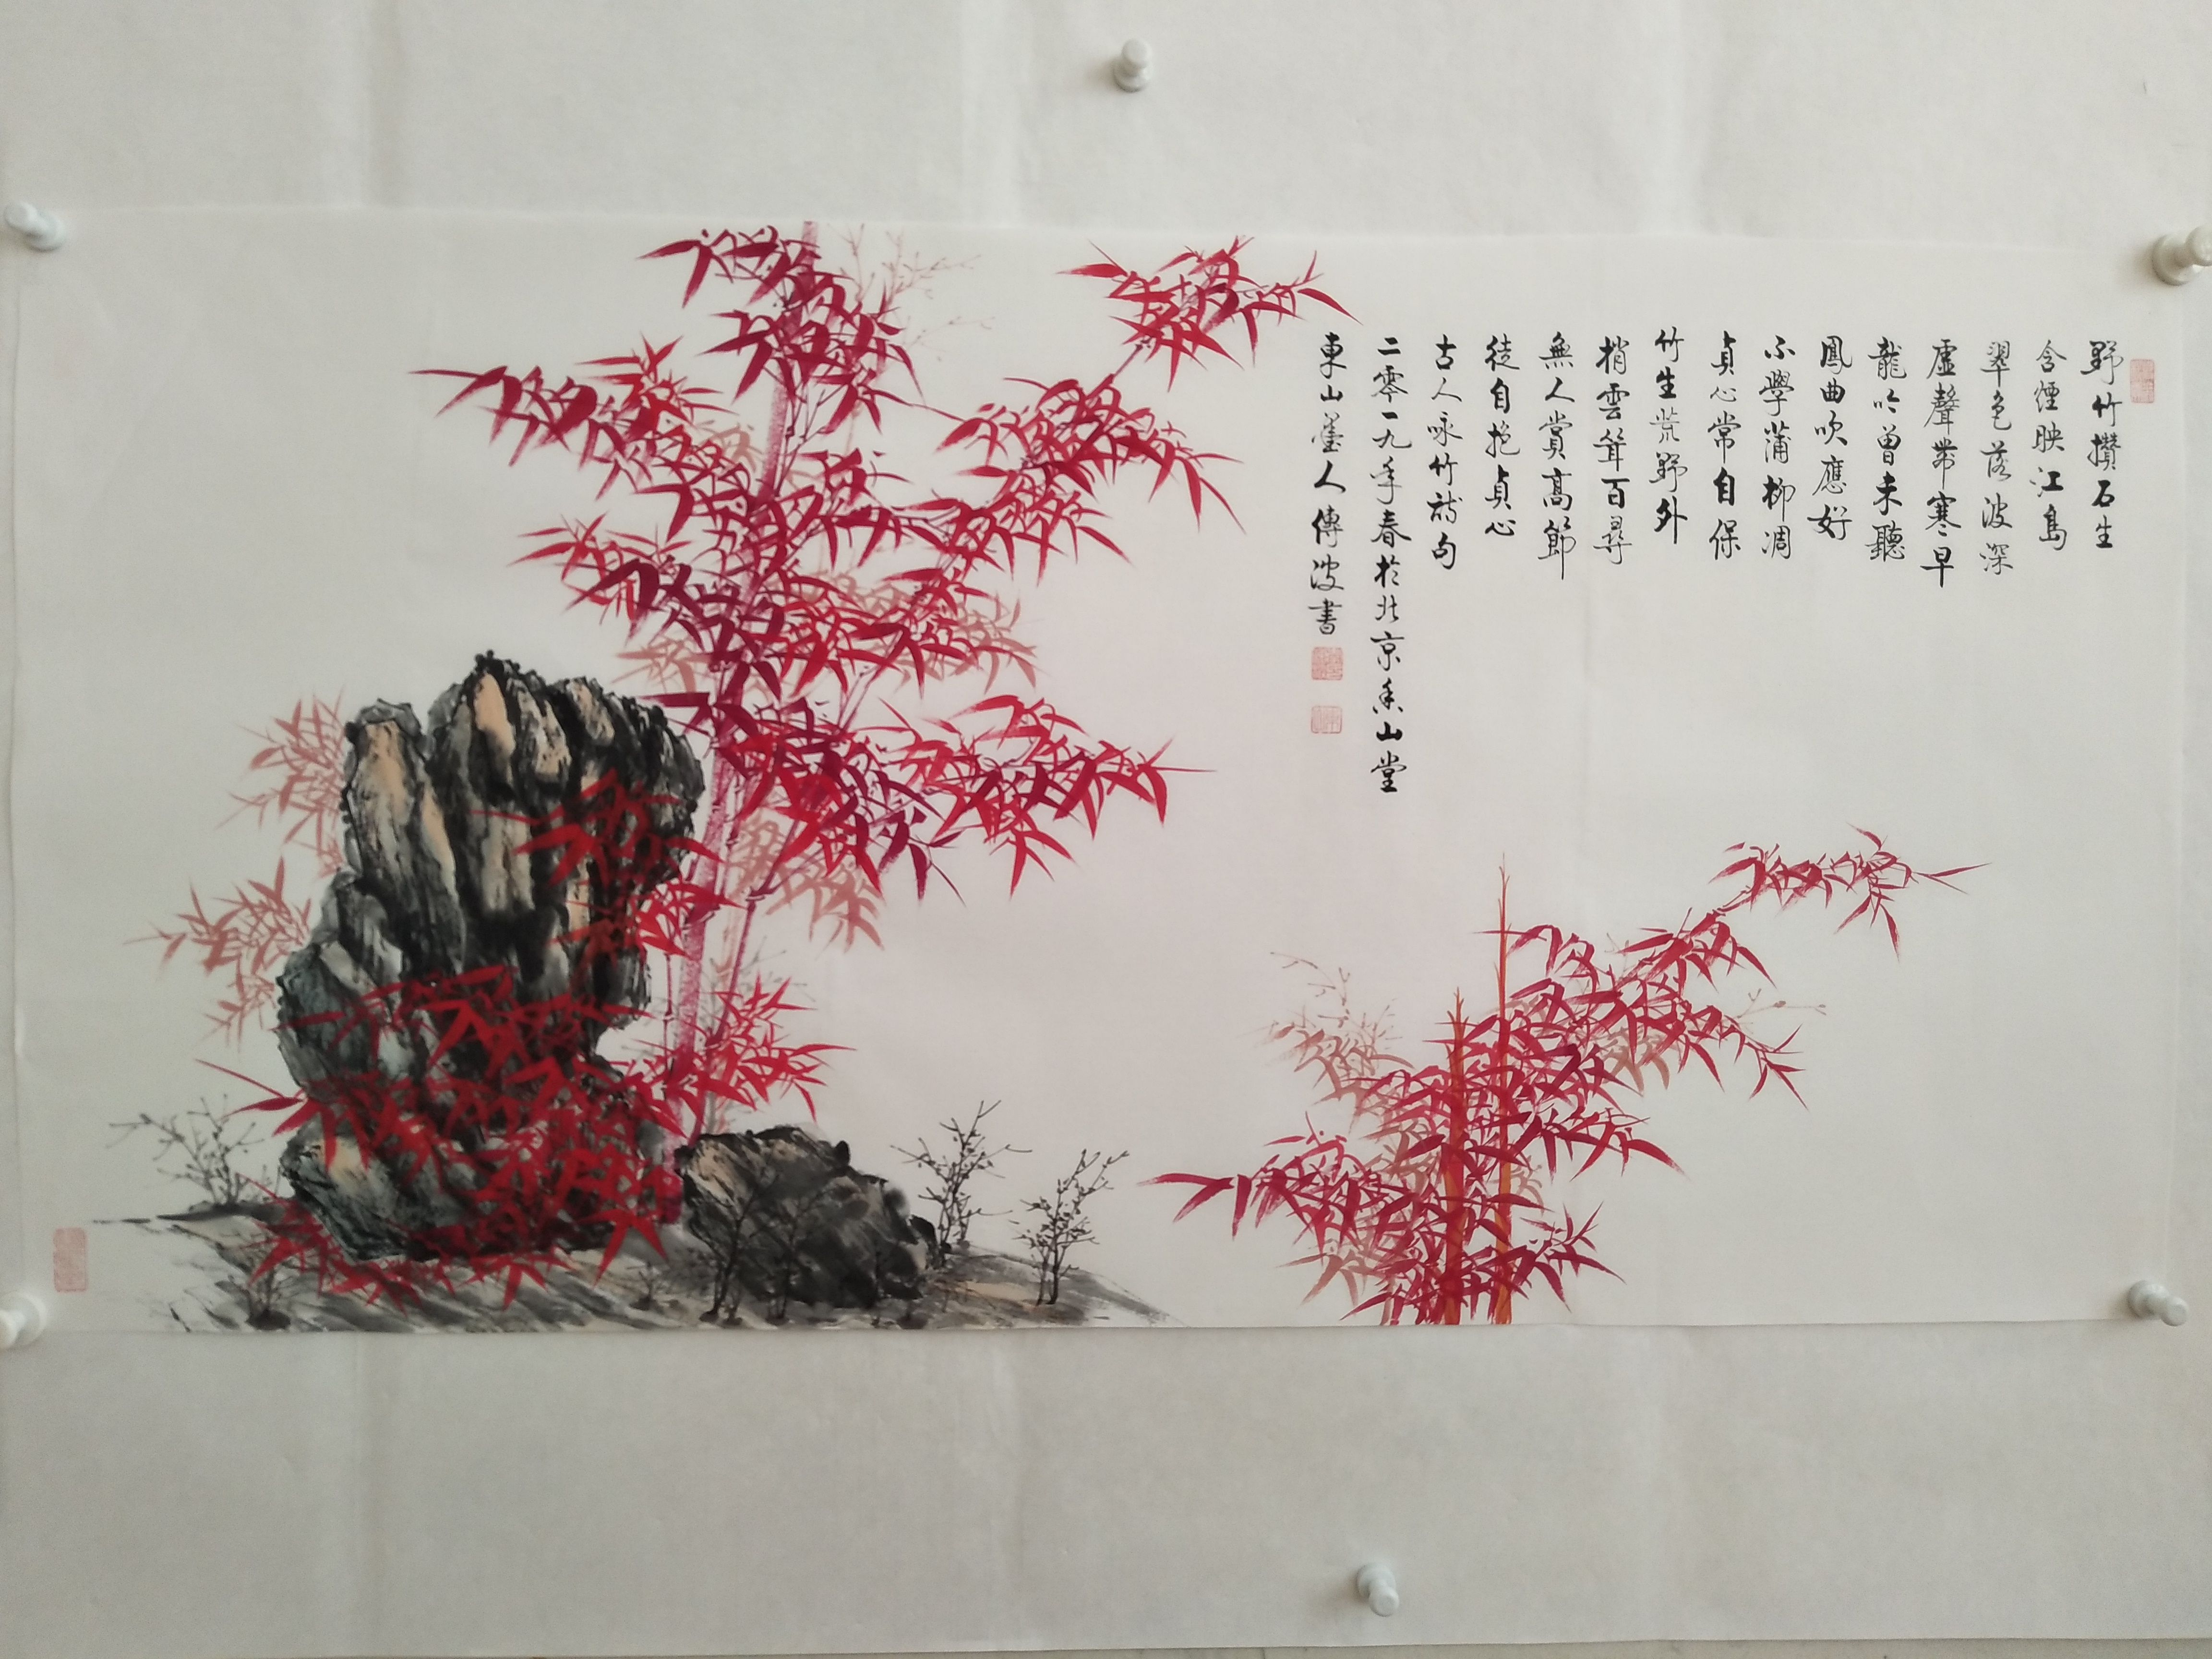 野竹攢石生
含煙映江島
翠色落波深
虛聲帶寒早
龍吟曾未聽
鳳曲吹應好
不學蒲柳凋
貞心常自保
竹生荒野外
梢雲聳百尋
無人賞高節
徒自抱貞心
古人咏竹詩句
二零一九年春於北京香山堂
東山墨人傳波書